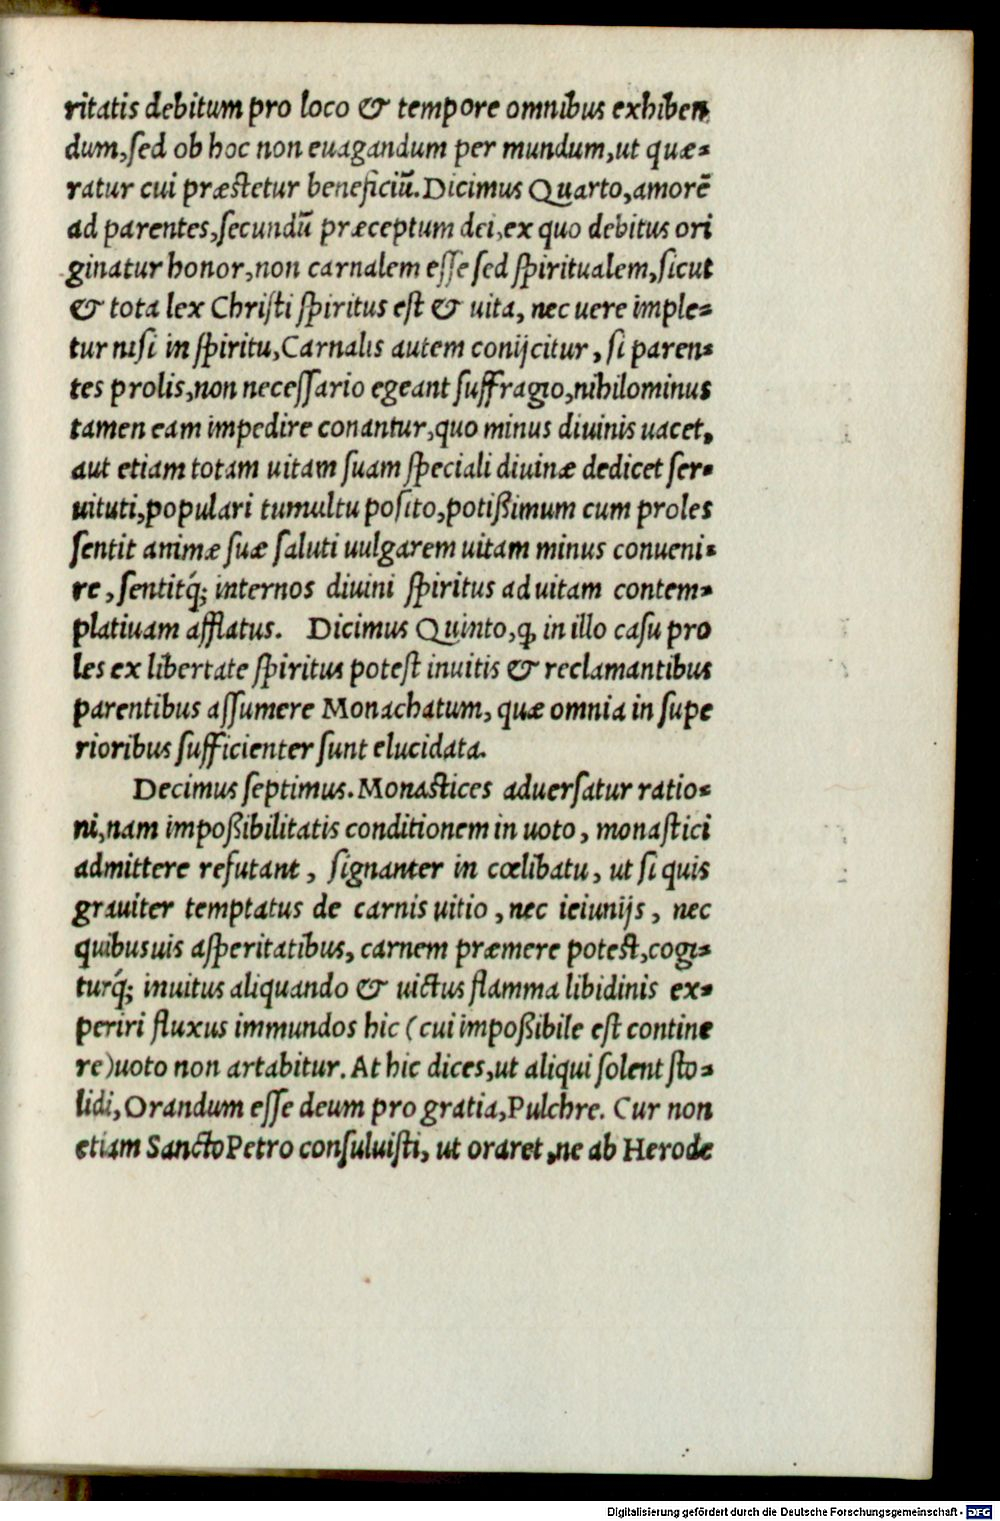 ritatis debitum pro loco & tempore omnibus exhiben
dum,ſed ob hoc non euagandum per mundum,ut quæ-
ratur cui præstetur beneficiũ.Dicimus Quarto,amorẽ
ad parentes,ſecundũ præceptum dei,ex quo debitus ori
ginatur honor,non carnalem eſſe ſed ſpiritualem,ſicut
& tota lex Chriſti ſpiritus eſt & uita, nec uere imple-
tur niſi in ſpiritu,Carnalis autem conijcitur, ſi paren-
tes prolis,non neceſſario egeant ſuffragio,nihilominus
tamen eam impedire conantur,quo minus diuinis uacet,
aut etiam totam uitam ſuam ſpeciali diuinæ dedicet ſer-
uituti,populari tumultu poſito,potißimum cum proles
ſentit animæ ſuæ ſaluti uulgarem uitam minus conueni-
re, ſentitq́; internos diuini ſpiritus ad uitam contem-
platiuam afflatus. Dicimus Quinto,ꝙ in illo caſu pro
les ex libertate ſpiritus poteſt inuitis & reclamantibus
parentibus aſſumere Monachatum, quæ omnia in ſupe
rioribus ſufficienter ſunt elucidata.
Decimus ſeptimus. Monastices aduerſatur ratio-
ni,nam impoßibilitatis conditionem in uoto, monaſtici
admittere refutant, ſignanter in cœlibatu, ut ſi quis
grauiter temptatus de carnis uitio, nec ieiunijs, nec
quibusuis aſperitatibus, carnem præmere potest,cogi-
turq́; inuitus aliquando & uictus flamma libidinis ex-
periri fluxus immundos hic (cui impoßibile eſt contine
re)uoto non artabitur. At hic dices,ut aliqui ſolent sto-
lidi,Orandum eſſe deum pro gratia,Pulchre. Cur non
etiam Sancto Petro conſuluiſti, ut oraret,ne ab Herode
Digitalisierung gefördert durch die Deutsche Forschungsgemeinschaft - DFG